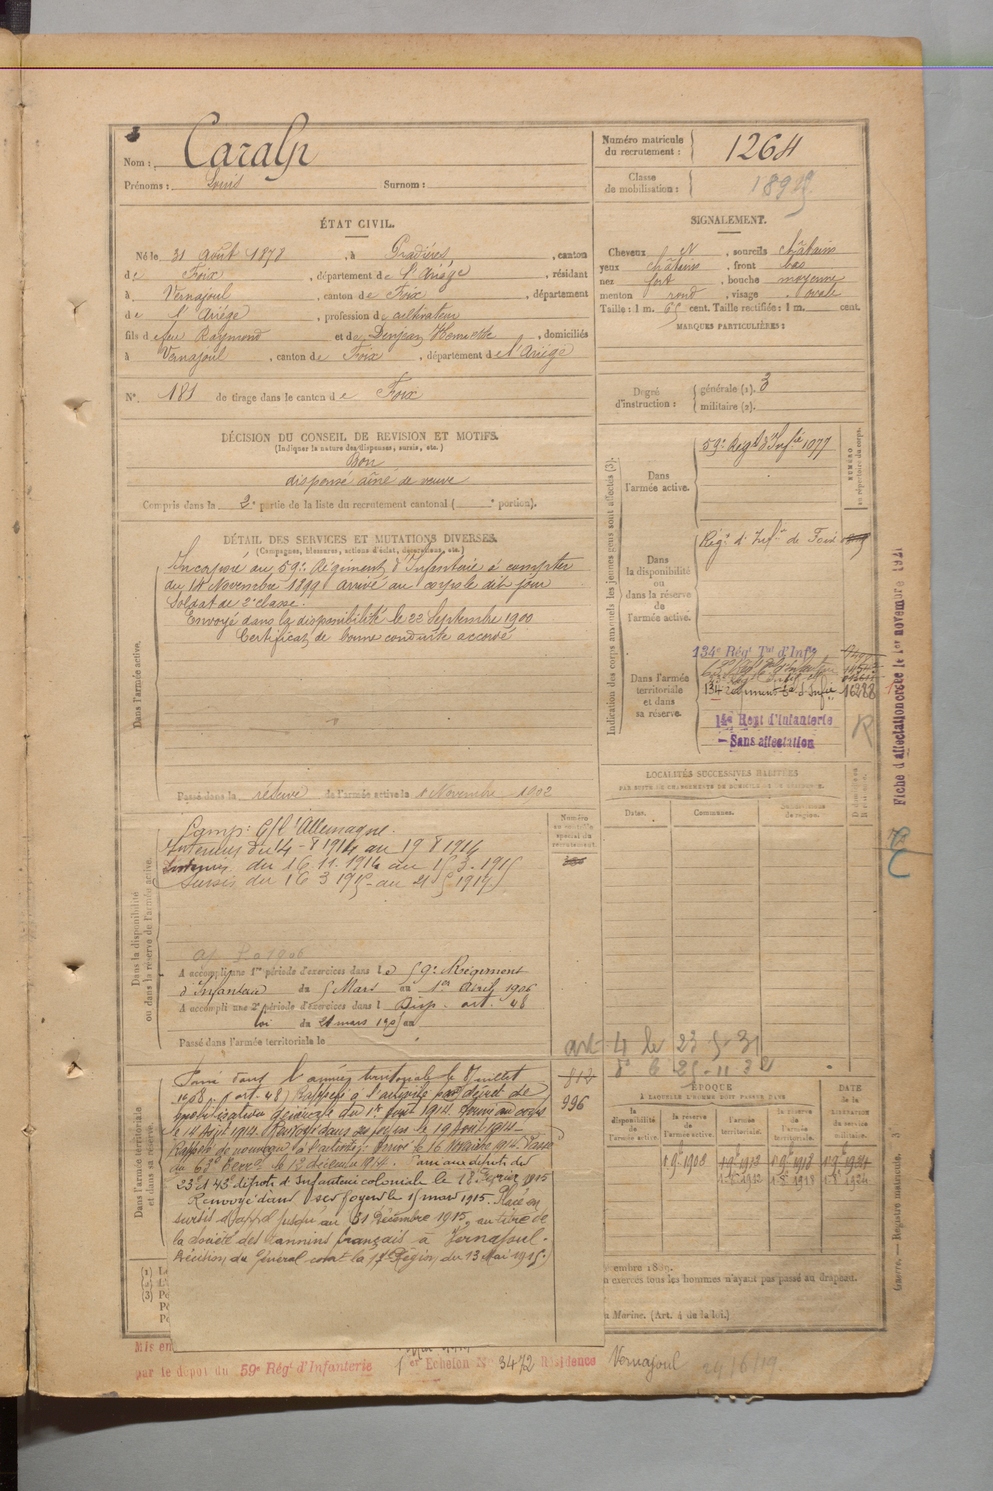 Nom : Caralp
Prénoms : Louis Surnom :
Numéro matricule du recrutement : 1264
Classe de mobilisation : 1895
ÉTAT CIVIL.
Né le 31 août 1878, à Pradières, canton
de Foix, département de l'Ariège, résidant
à Vernajoul, canton de Foix, département
de l'Ariège, profession de cultivateur
fils de feu Raymond et de Denjean Henriette, domiciliés
à Vernajoul, canton de Foix, département de l'Ariège
N°. 181 de tirage dans le canton de Foix
SIGNALEMENT.
Cheveux N, sourcils châtains
yeux châtains, front bas
nez fort, bouche moyenne
menton rond, visage ovale
Taille : 1 m. 65 cent. Taille rectifiée : 1 m. cent.
MARQUES PARTICULIÈRES :
Degré d'instruction : générale (1). 3
militaire (2).
DÉCISION DU CONSEIL DE REVISION ET MOTIFS.
(Indiquer la nature des dispenses, sursis, etc.)
Bon
dispensé aîné de veuve
Compris dans la 2e partie de la liste du recrutement cantonal ( e portion).
DÉTAIL DES SERVICES ET MUTATIONS DIVERSES.
(Campagnes, blessures, actions d'éclat, décorations, etc.)
Dans l'armée active.
Incorporé au 59e Régiment d'Infanterie à compter
du 14 Novembre 1899 arrivé au corps le dit jour
Soldat de 2e classe.
Envoyé dans la disponibilité le 22 Septembre 1900
Certificat de bonne conduite accordé
Passé dans la réserve de l'armée active le 1 Novembre 1902
Indication des corps auxquels les jeunes gens sont affectés (3).
NUMÉRO au répertoire du corps.
Dans l'armée active.
59e Régt d'Infie 1077
Dans la disponibilité ou dans la réserve de l'armée active.
Régt d'Infie de Foix
Dans l'armée territoriale et dans sa réserve.
134e Régt Tal d'Infie
134 Régiment Tal d'Infie 16288
14e Regt d'Infanterie
Sans affectation
R
Fiche d'affectation créée le 1er novembre 1921
LOCALITÉS SUCCESSIVES HABITÉES
PAR SUITE DE CHANGEMENTS DE DOMICILE OU DE RÉSIDENCE.
Dates. Communes. Subdivisions de région.
Numéro au contrôle spécial du recrutement.
Dans la disponibilité ou dans la réserve de l'armée active.
Camp: C/ l'Allemagne.
Intérieur du 14-8 1914 au 19 8 1914
Intérieur du 16.11.1914 au 15.3.1915
Sursis du 16 3 1915 au
A accompli une 1re période d'exercices dans le 59e Régiment
d'Infanterie du 5 Mars au 1er Avril 1906
A accompli une 2e période d'exercices dans l Disp. art. 48
loi du 21 mars 1905 au
Passé dans l'armée territoriale le
art 4 le 23-5-31
Dans l'armée territoriale et dans sa réserve.
812
996
Passé dans l'armée territoriale le
(art. 48) Rappelé à l'activité par décret de
mobilisation générale du 1er Août 1914. Arrivé au corps
le 14 Août 1914. Renvoyé dans ses foyers le 19 Août 1914.
Rappelé de nouveau à l'activité. Arrivé le 16 Novembre 1914. Passé
au 63e Terral le 12 décembre 1914. Passé aux dépôts des
23 et 43e dépôts d'Infanterie coloniale le 18 Février 1915
Renvoyé dans ses foyers le 15 mars 1915. Placé en
sursis d'appel jusqu'au 31 Décembre 1915, au titre de
la société des Tannins français à Vernajoul.
Décision du Général comt la 17e Région du 13 Mai 1915.
ÉPOQUE
À LAQUELLE L'HOMME DOIT PASSER DANS
la disponibilité de l'armée active. la réserve de l'armée active. l'armée territoriale. la réserve de l'armée territoriale.
DATE de la LIBÉRATION du service militaire.
vembre 1889.
exercés tous les hommes n'ayant pas passé au drapeau.
Marine. (Art. 4 de la loi.)
Guerre. — Registre matricule.
par le dépôt du 59e Régt d'Infanterie 1er Echelon N° 3472 Résidence Vernajoul 24/6/19.